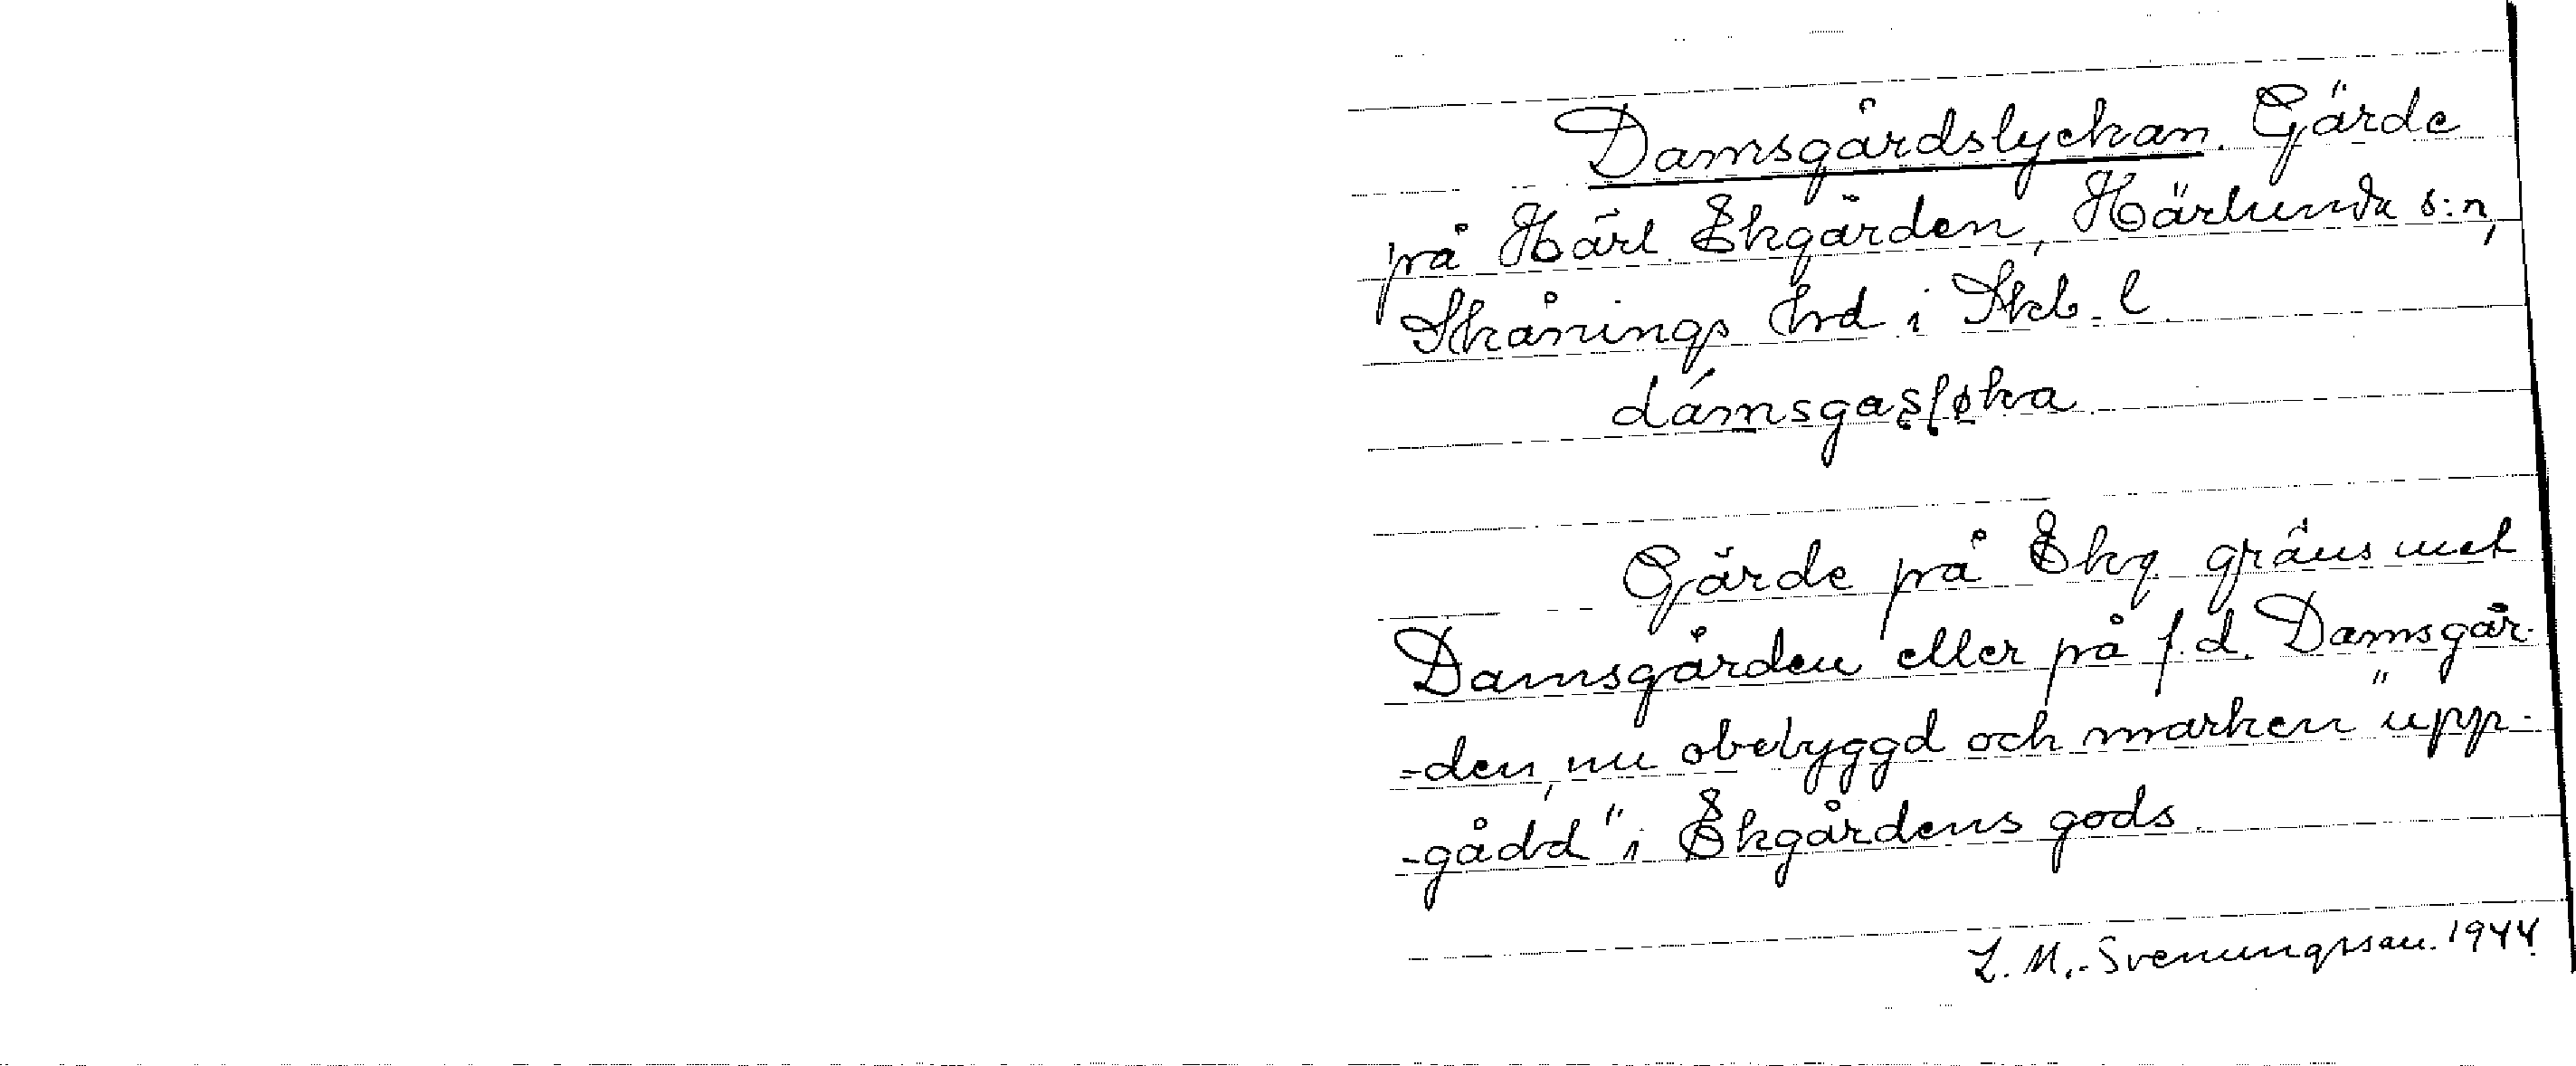 Damsgårdslyckan. Gärde
på Härl. Ekgården, Härlunda s:n,
Skånings hrd i Skb. l
dámsgasløka
Gärde på Ekg gräns met
Damsgården eller på f.d. Damsgår-
-den, nu obebyggd och marken "upp-
-gådd" i Ekgårdens gods.
L. M. Svenungsson. 1944.